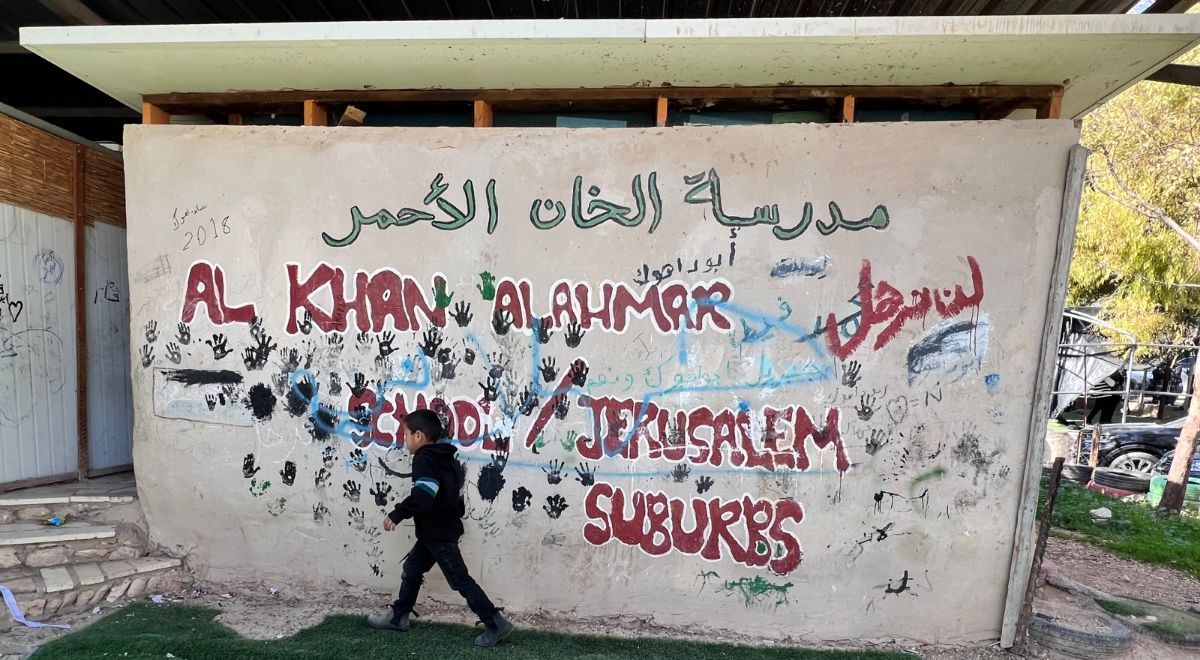 مدرسة الخان الأحمر
2018
أبو داهوك
AL KHAN ALAHMAR
لن نرحل
SCHOOL / JERUSALEM
SUBURBS